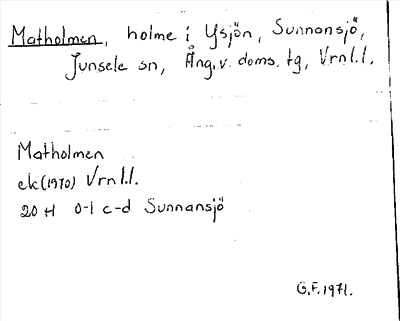 Matholmen, holme i Ysjön, Sunnansjö,
Junsele sn, Ång.v. doms. tg, Vrnl.l.
Matholmen
ek(1970) Vrnl.l.
20 H 0-1 c-d Sunnansjö
G.F. 1971.